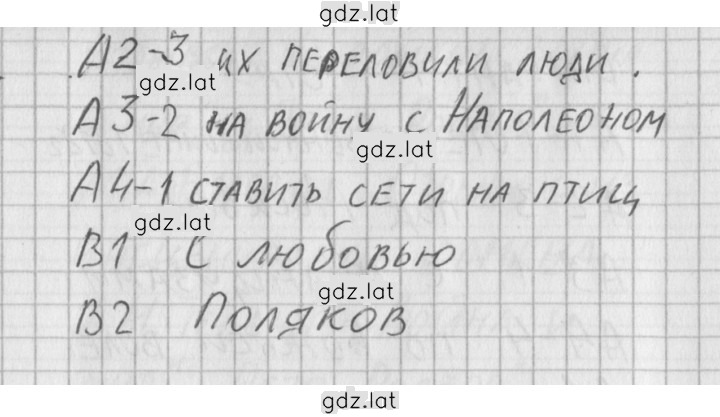 gdz.lat
А2-3 их переловили люди.
gdz.lat
А3-2 на войну с Наполеоном
gdz.lat
А4-1 ставить сети на птиц
gdz.lat
В1 С любовью
gdz.lat
В2 Поляков
gdz.lat